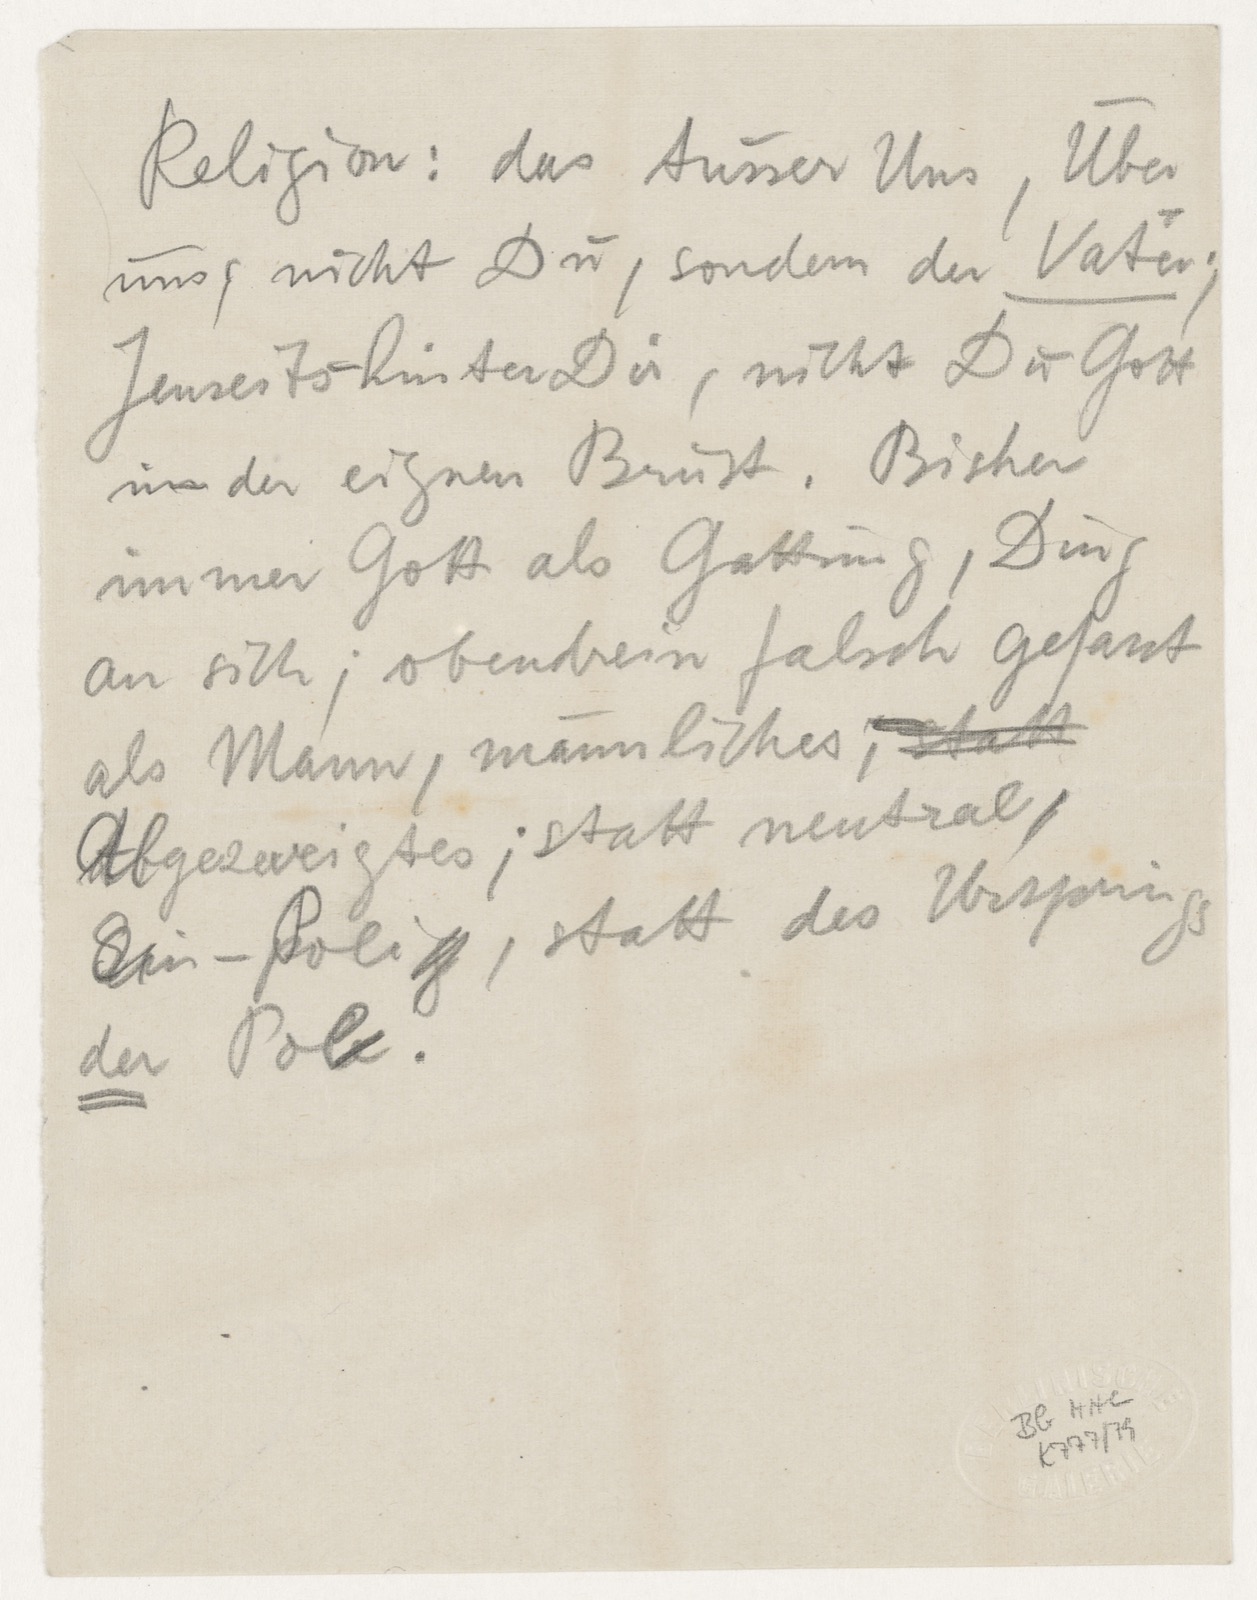 Religion: das Ausser Uns, Über
uns, nicht Du, sondern der Vater;
Jenseits-hinter Dir, nicht Du Gott
in der eignen Brust. Bisher
immer Gott als Gattung, Ding
an sich; obendrein falsch gefasst
als Mann, männliches, statt
Abgezweigtes; statt neutral,
Ein-Polig, statt des Ursprungs
der Pole.
BG HHC
K777/79
BERLINISCHE
GALERIE